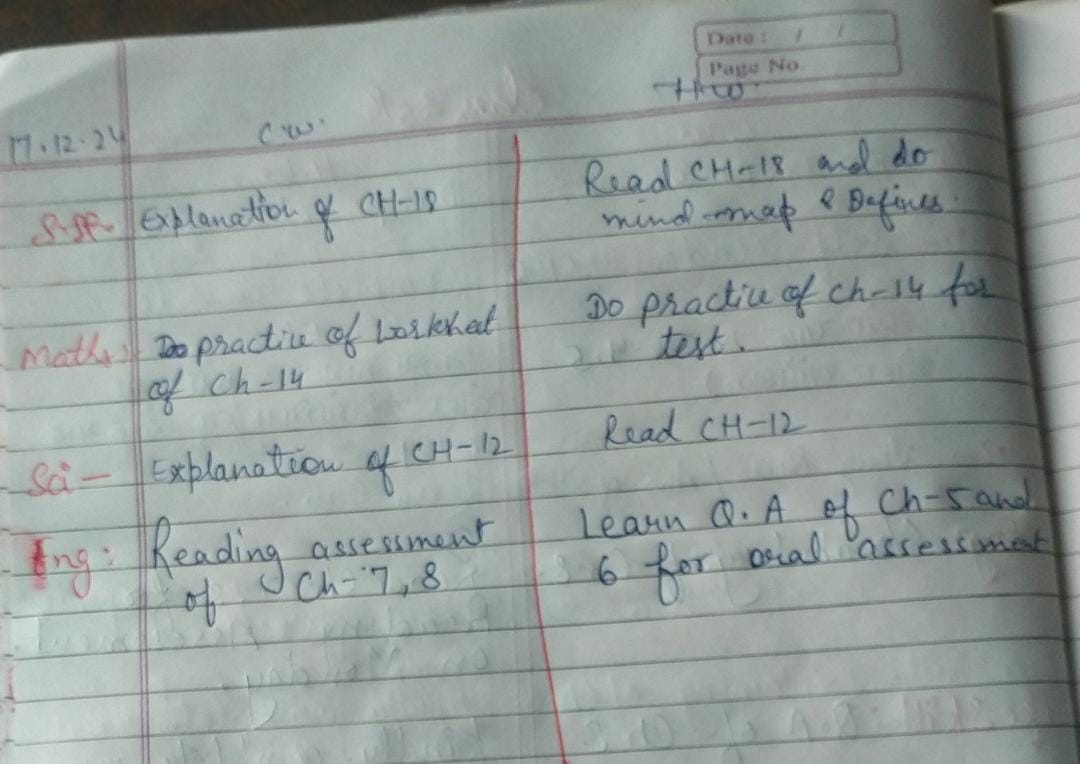 Date: / /
Page No.
H.W.
17.12.24 C.W.
S.St. Explanation of CH-18
Read CH-18 and do
mind-map & Defines.
Maths: Do practice of worksheet
of Ch-14
Do practice of Ch-14 for
test.
Sci - Explanation of CH-12
Read CH-12
Eng: Reading assessment
of Ch-7, 8
Learn Q.A of Ch-5 and
6 for oral assessment